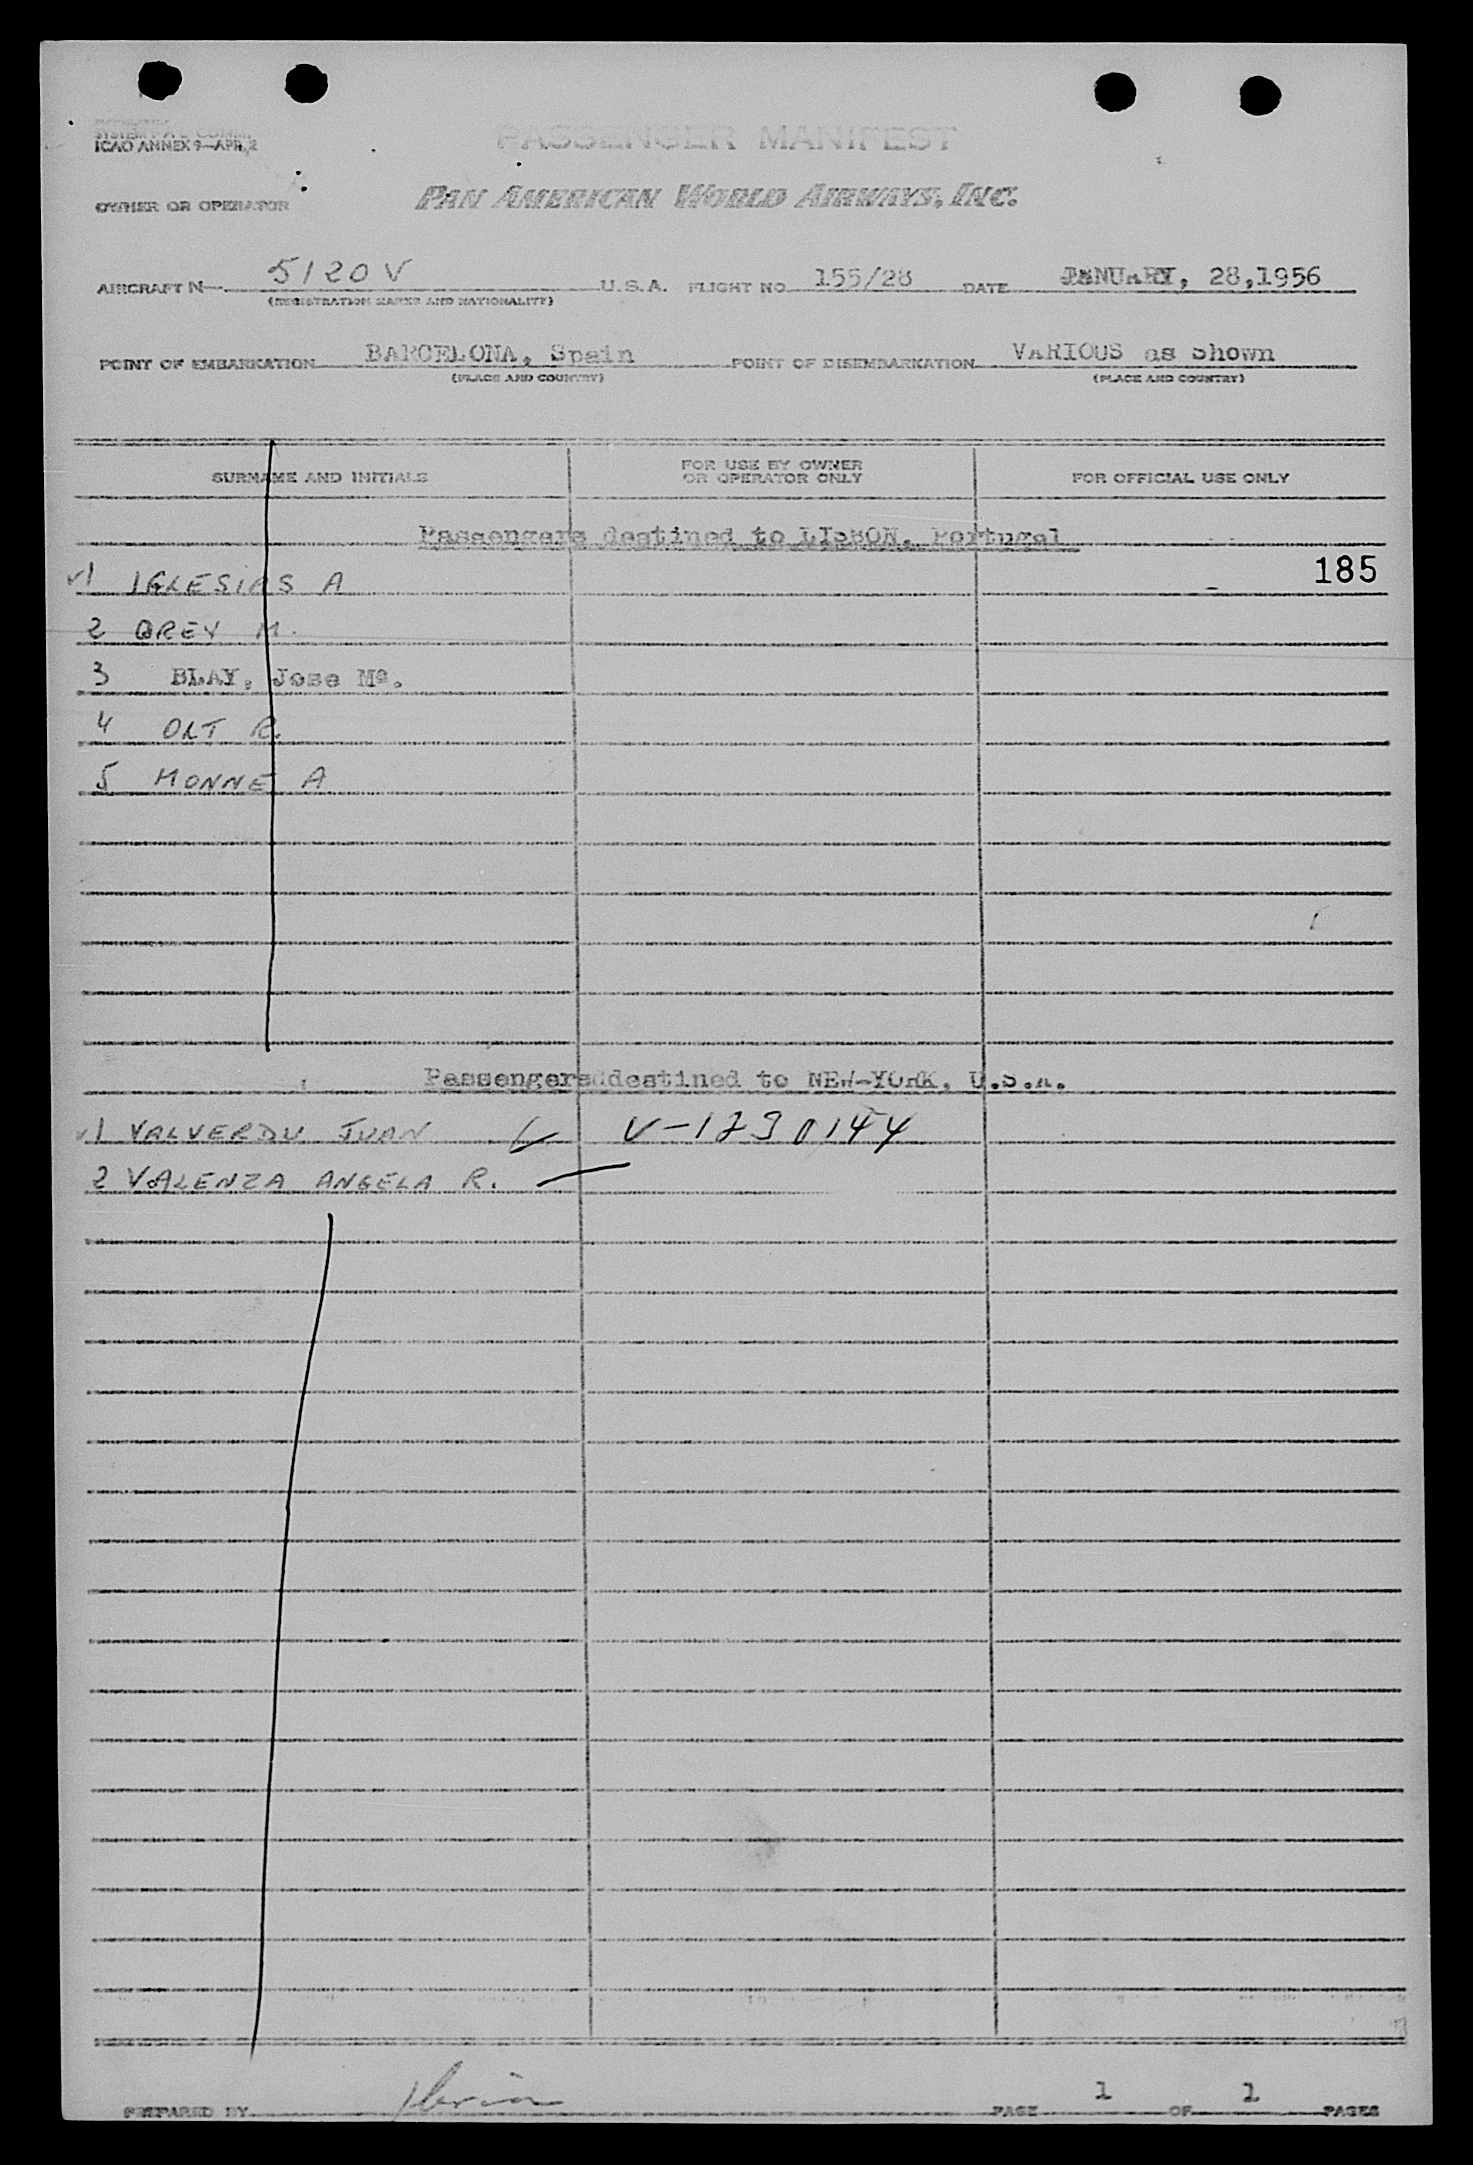 SYSTEM P A L COMM.
ICAO ANNEX 9—APR. 2
PASSENGER MANIFEST
OWNER OR OPERATOR PAN AMERICAN WORLD AIRWAYS, INC.
AIRCRAFT N— 5120 V U.S.A. FLIGHT NO 155/28 DATE JANUARY, 28,1956
(REGISTRATION MARKS AND NATIONALITY)
POINT OF EMBARKATION BARCELONA, Spain POINT OF DISEMBARKATION VARIOUS as Shown
(PLACE AND COUNTRY) (PLACE AND COUNTRY)
SURNAME AND INITIALS FOR USE BY OWNER OR OPERATOR ONLY FOR OFFICIAL USE ONLY
Passengers destined to LISBON, Portugal
1 IGLESIAS A 185
2 GREY M.
3 BLAY, Jose Mª.
4 OLT R.
5 MONNE A
Passengers destined to NEW-YORK, U.S.A.
1 VALVERDU JUAN V-1230144
2 VALENZA ANGELA R.
PREPARED BY PAGE 1 OF 1 PAGES